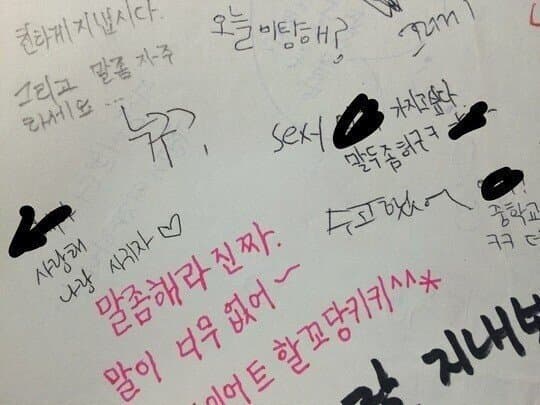 지냅시다.
그리고 말좀 자주
하세요...
오늘 미탕해?
뉴?
sex시
가지고싶다
말두좀하구ㅋ
수고했어
중학교
ㅋㅋ
사랑해
나랑 사귀자♡
말좀해라 진짜.
말이 너무 없어~
이어트 할꼬당키키^^*
지내